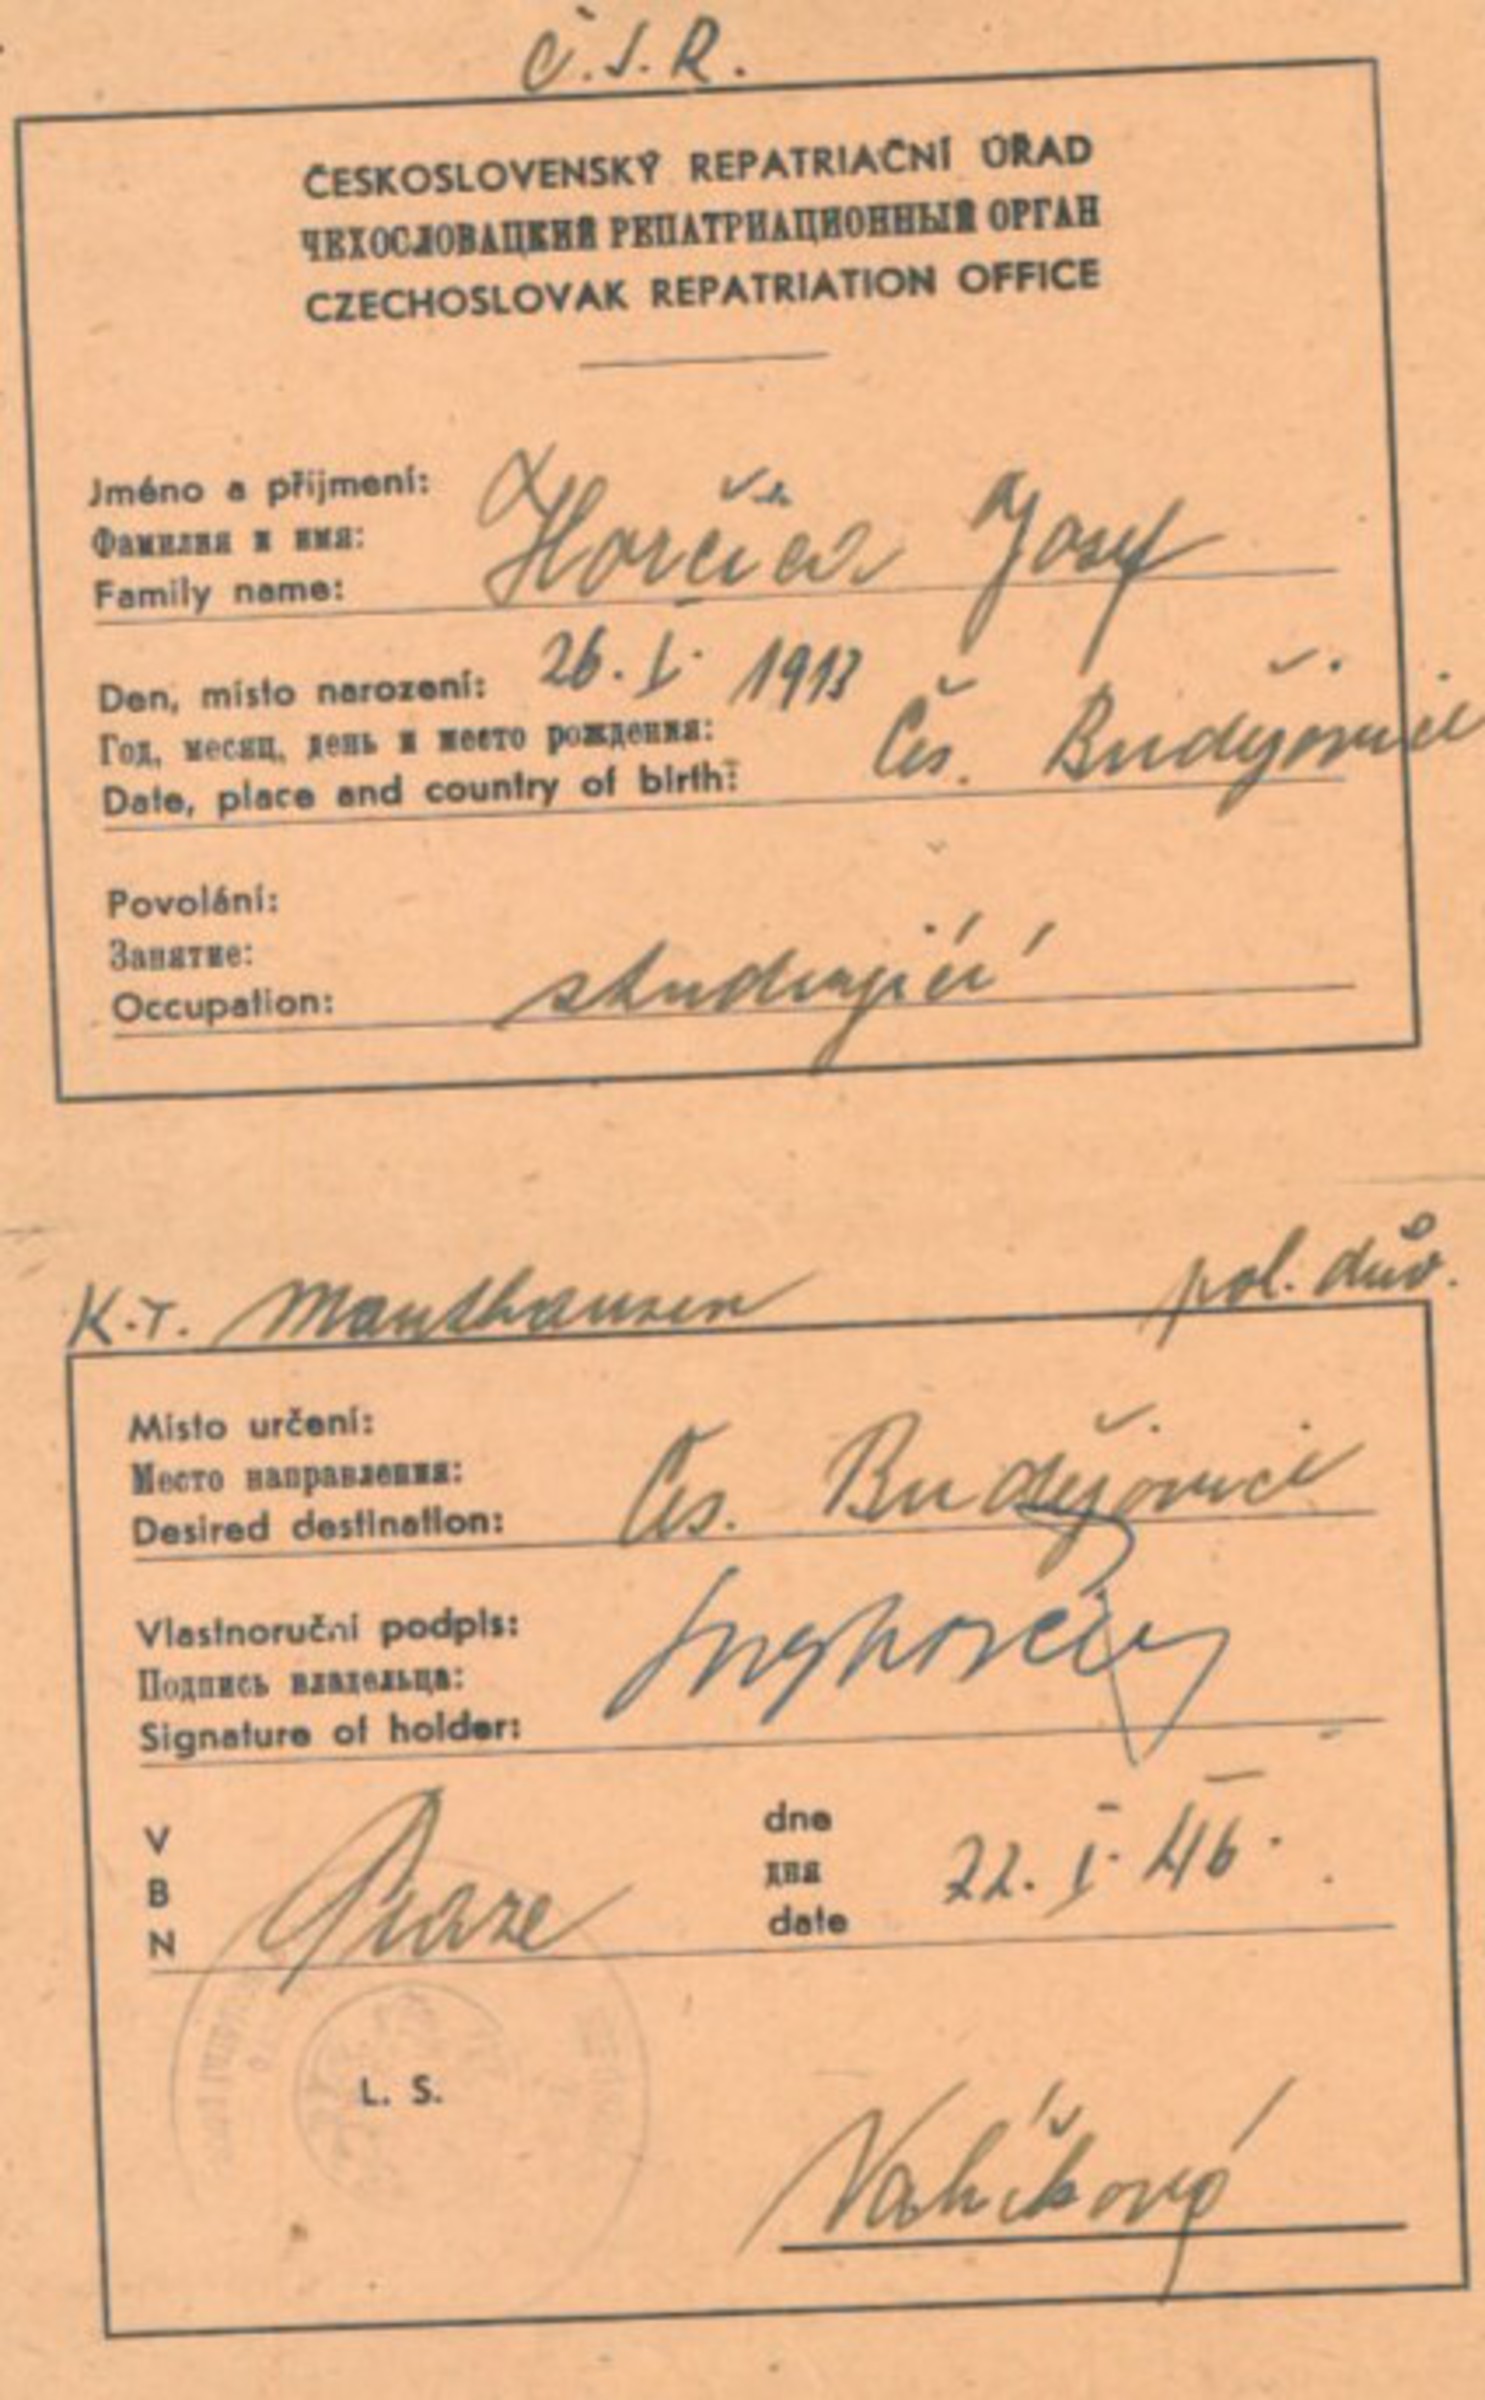 Č.S.R.
ČESKOSLOVENSKÝ REPATRIAČNÍ ÚŘAD
ЧЕХОСЛОВАЦКИЙ РЕПАТРИАЦИОННЫЙ ОРГАН
CZECHOSLOVAK REPATRIATION OFFICE
Jméno a příjmení:
Фамилия и имя:
Family name: Horčica Josef
Den, místo narození: 26. I. 1913
Год, месяц, день и место рождения:
Date, place and country of birth: Čes. Budějovice
Povolání:
Занятие:
Occupation: studující
K.T. Mauthausen pol. dův.
Místo určení:
Место направления:
Desired destination: Čes. Budějovice
Vlastnoruční podpis:
Подпись владельца:
Signature of holder:
V dne
В дня
N Praze date 22. I. 46.
L. S.